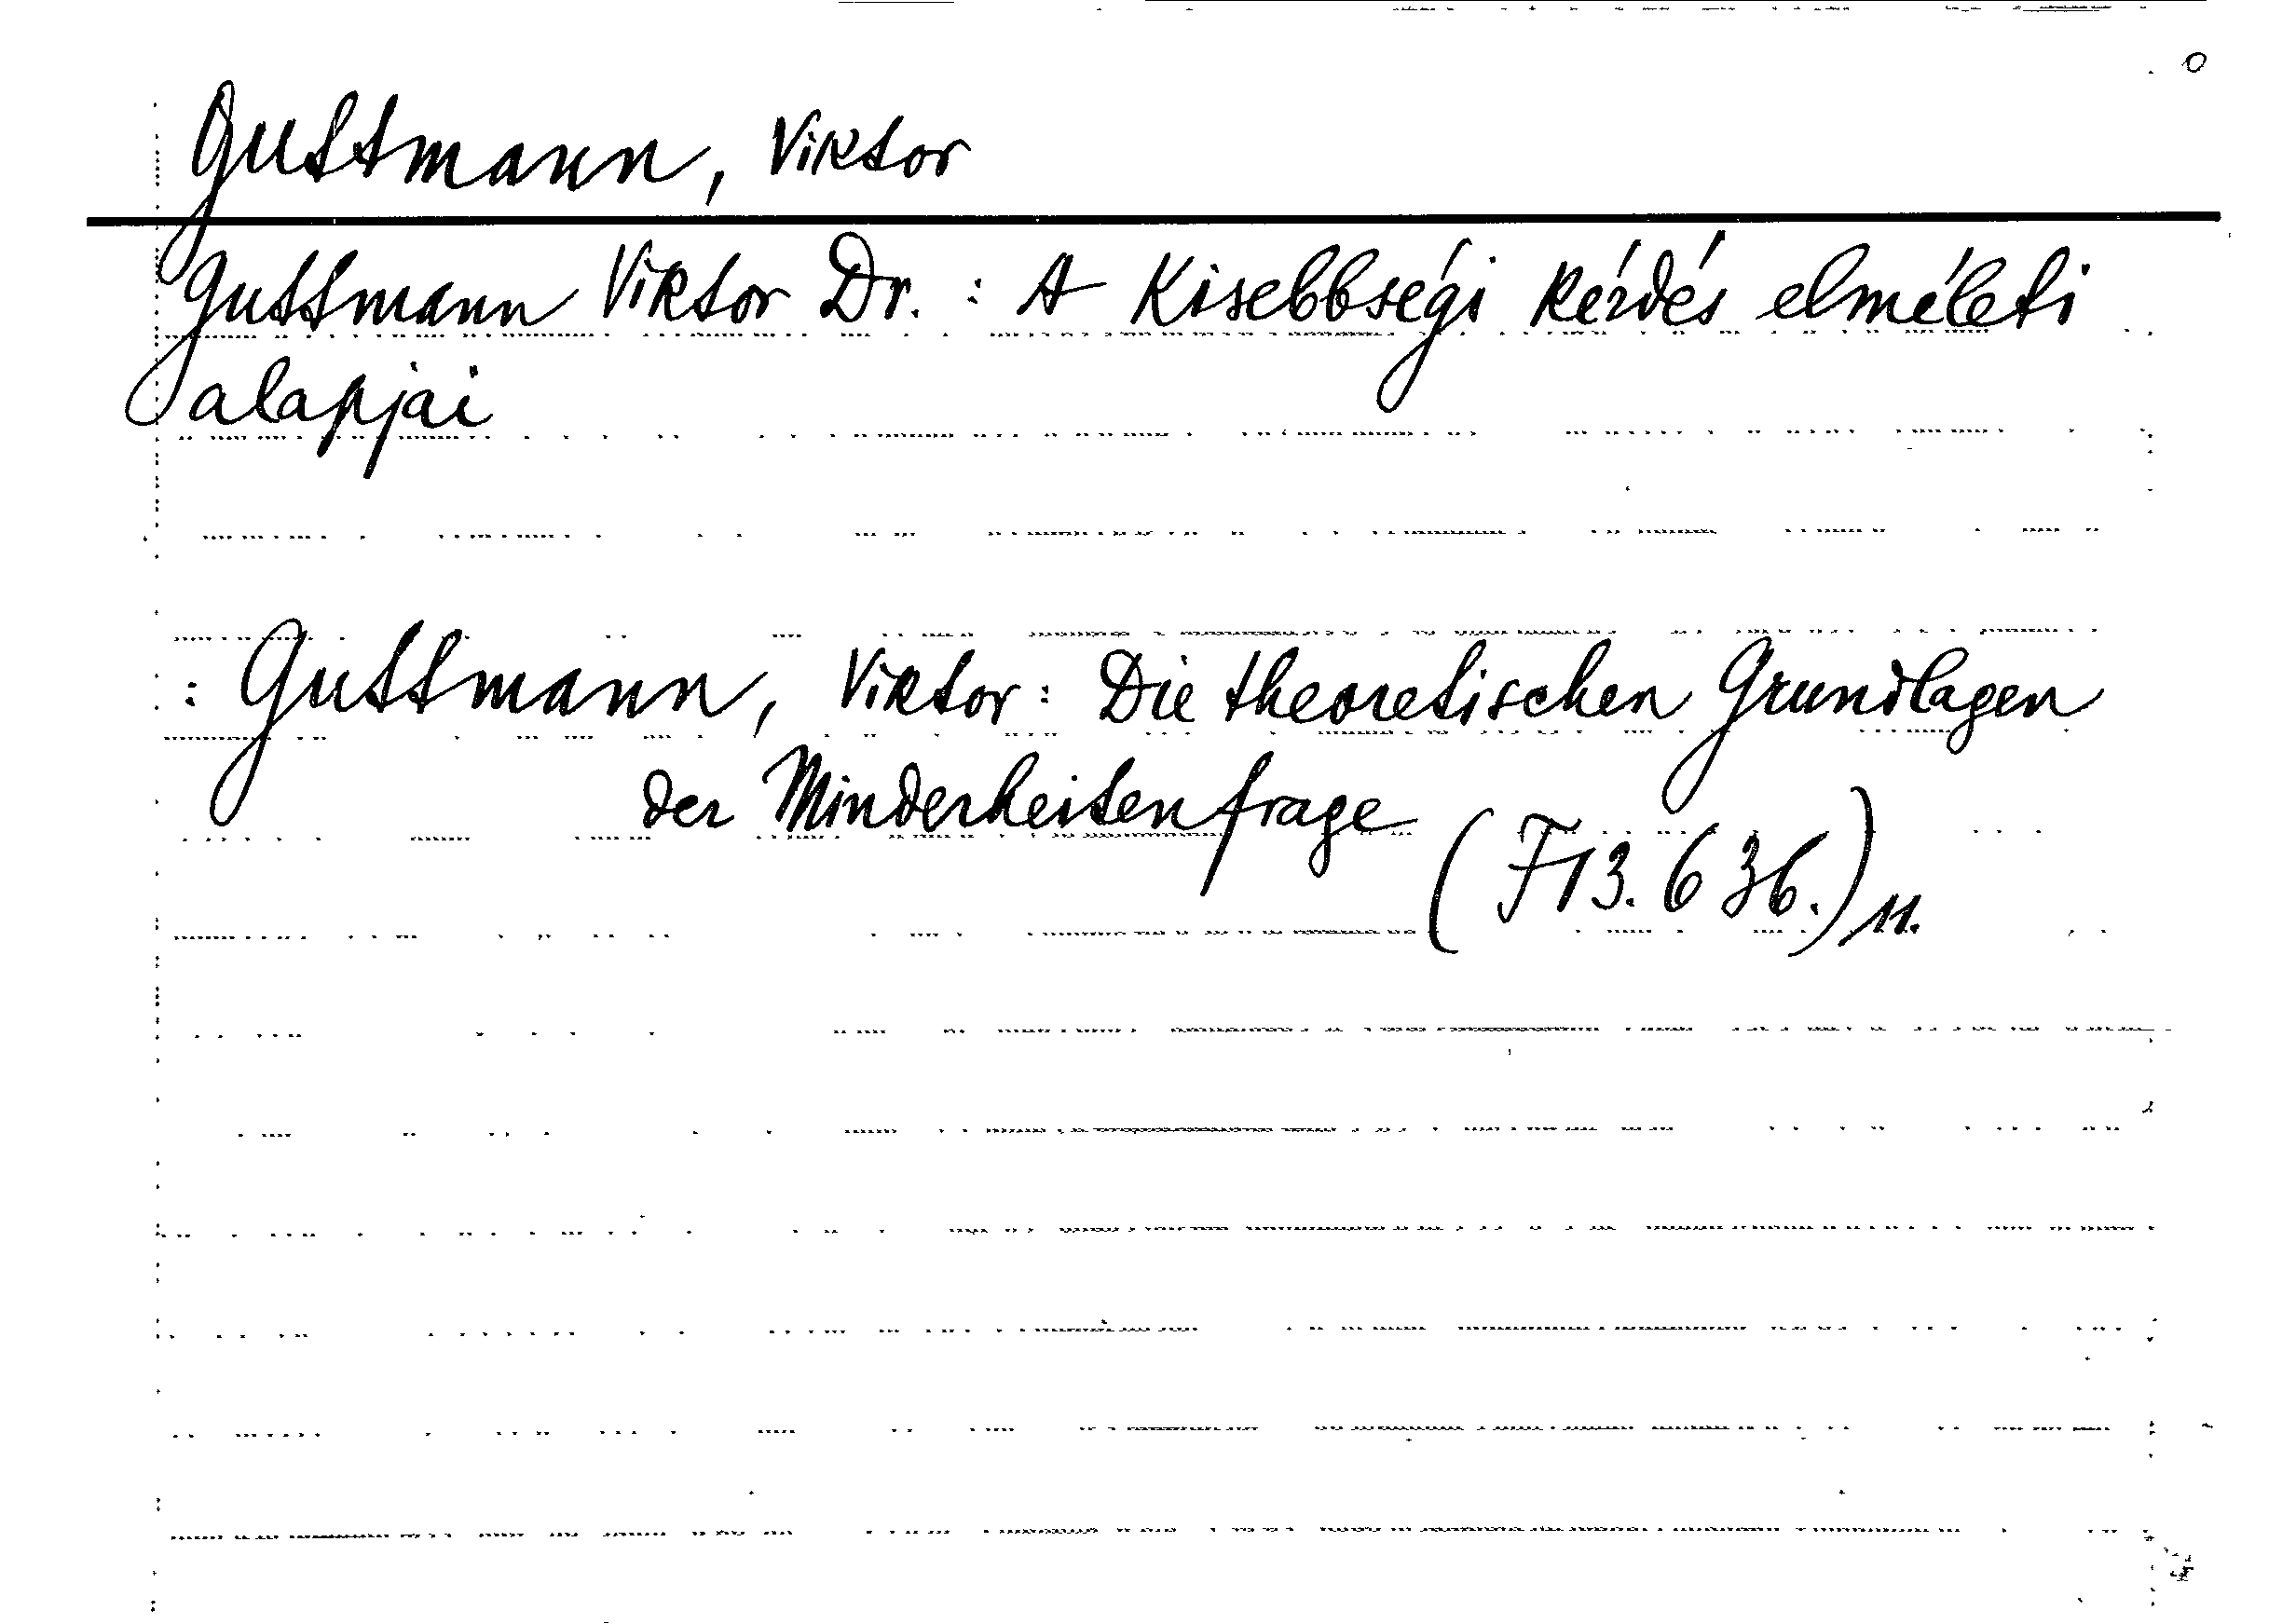 Guttmann, Viktor
Guttmann Viktor Dr. : A Kisebbségi kérdés elméleti
alapjai
: Guttmann, Viktor: Die theoretischen Grundlagen
der Minderheitenfrage
(F13.636.) 11.